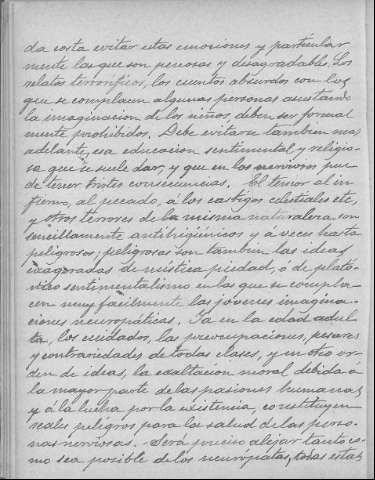 da costa evitar estas emociones y particular
mente las que son penosas y desagradables. Los
relatos terroríficos, los cuentos absurdos con los
que se complacen algunas personas asustando
la imaginacion de los niños, deben ser formal
mente prohibidos. Debe evitarse tambien mas
adelante, esa educacion sentimental y religio-
sa que se suele dar, y que en los nerviosos pue
de tener tristes consecuencias. El temor al in-
fierno, al pecado, á los castigos celestiales etc,
y otros terrores de la misma naturaleza son
sencillamente antihigiénicos y á veces hasta
peligrosos; peligrosas son tambien las ideas
exageradas de mistica piedad, o de plató-
nico sentimentalismo en las que se compla-
cen muy facilmente las jóvenes imagina-
ciones neuropáticas. Ya en la edad adul-
ta, los cuidados, las preocupaciones, pesares
y contrariedades de todas clases, y en otro or-
den de ideas, la exaltacion moral debida á
la mayor parte de las pasiones humanas
y á la lucha por la existencia, constituyen
reales peligros para la salud de las perso-
nas nerviosas. Será preciso alejar tanto co-
mo sea posible de los neurópatas, todas estas